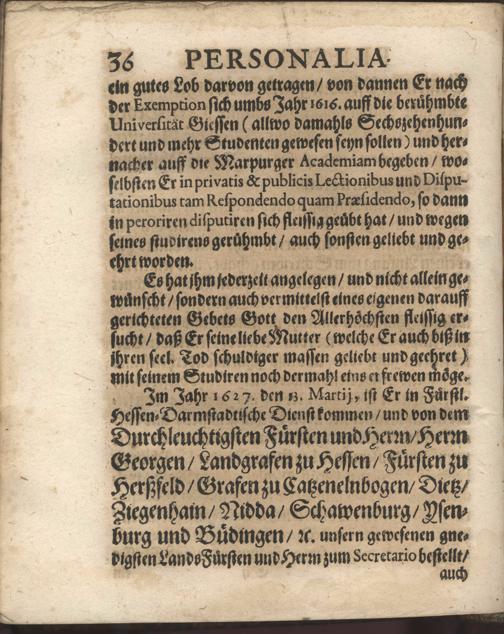 36 PERSONALIA.
ein gutes Lob darvon getragen / von dannen Er nach
der Exemption sich umbs Jahr 1616. auff die berühmbte
Universität Giessen ( allwo damahls Sechszehenhun-
dert und mehr Studenten gewesen seyn sollen ) und her-
nacher auff die Marpurger Academiam begeben / wo-
selbsten Er in privatis & publicis Lectionibus und Dispu-
tationibus tam Respondendo quam Præsidendo, so dann
in peroriren disputiren sich fleissig geübt hat / und wegen
seines studirens gerühmbt / auch sonsten geliebt und ge-
ehrt worden.
Es hat ihm jederzeit angelegen / und nicht allein ge-
wünscht / sondern auch vermittelst eines eigenen darauff
gerichteten Gebets Gott den Allerhöchsten fleissig er-
sucht / daß Er seine liebe Mutter ( welche Er auch biß in
ihren seel. Tod schuldiger massen geliebt und geehret )
mit seinem Studiren noch dermahl eins erfrewen möge.
Im Jahr 1627. den 13. Martij, ist Er in Fürstl.
Hessen-Darmstadtische Dienst kommen / und von dem
Durchleuchtigsten Fürsten und Herrn / Herrn
Georgen / Landgrafen zu Hessen / Fürsten zu
Herßfeld / Grafen zu Catzenelnbogen / Dietz /
Ziegenhain / Nidda / Schawenburg / Ysen-
burg und Büdingen / ꝛc. unsern gewesenen gne-
digsten LandsFürsten und Herrn zum Secretario bestellt /
auch